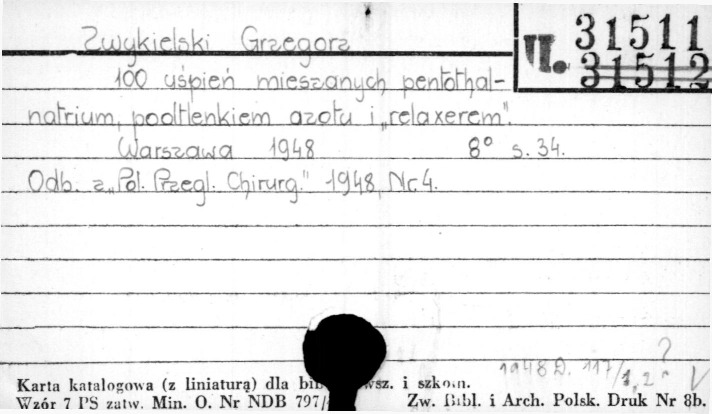 Zwykielski Grzegorz
II. 31511
31512
100 uśpień mieszanych pentothal-
natrium, podtlenkiem azotu i „relaxerem".
Warszawa 1948 8° s. 34.
Odb. z „Pol. Przegl. Chirurg." 1948, Nr 4.
1948 D. 117/1,2 ?
Karta katalogowa (z liniaturą) dla wsz. i szkoln.
Wzór 7 PS zatw. Min. O. Nr NDB 797/ Zw. Bibl. i Arch. Polsk. Druk Nr 8b.